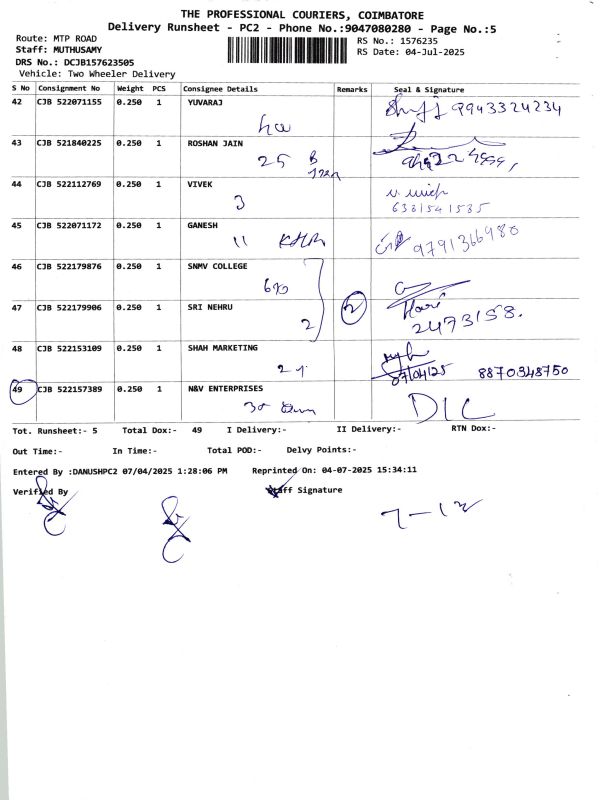 THE PROFESSIONAL COURIERS, COIMBATORE
Delivery Runsheet - PC2 - Phone No.:9047080280 - Page No.:5
Route: MTP ROAD
RS No.: 1576235
Staff: MUTHUSAMY
RS Date: 04-Jul-2025
DRS No.: DCJB157623505
Vehicle: Two Wheeler Delivery
S No Consignment No Weight PCS Consignee Details Remarks Seal & Signature
42 CJB 522071155 0.250 1 YUVARAJ 9943324234
43 CJB 521840225 0.250 1 ROSHAN JAIN
25 B
44 CJB 522112769 0.250 1 VIVEK
3 6331541535
45 CJB 522071172 0.250 1 GANESH
11 9791366980
46 CJB 522179876 0.250 1 SNMV COLLEGE
47 CJB 522179906 0.250 1 SRI NEHRU 2 Hari
2 2473158.
48 CJB 522153109 0.250 1 SHAH MARKETING
07/04/25 8870348750
49 CJB 522157389 0.250 1 N&V ENTERPRISES
DIC
Tot. Runsheet:- 5 Total Dox:- 49 I Delivery:- II Delivery:- RTN Dox:-
Out Time:- In Time:- Total POD:- Delvy Points:-
Entered By :DANUSHPC2 07/04/2025 1:28:06 PM Reprinted On: 04-07-2025 15:34:11
Verified By Staff Signature
7-12